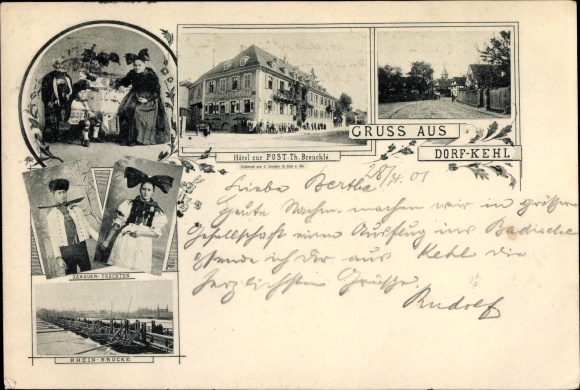 GRUSS AUS
DORF-KEHL
Hôtel zur POST, Th. Brencklé
HANAUER-TRACHTEN
RHEIN-BRÜCKE
28/4. 01
Liebe Bertha
Heute Nachm. machen wir in größerer
Gesellschaft einen Ausflug ins Badische
& sende ich Dir aus Kehl die
herzlichsten Grüße.
Rudolf